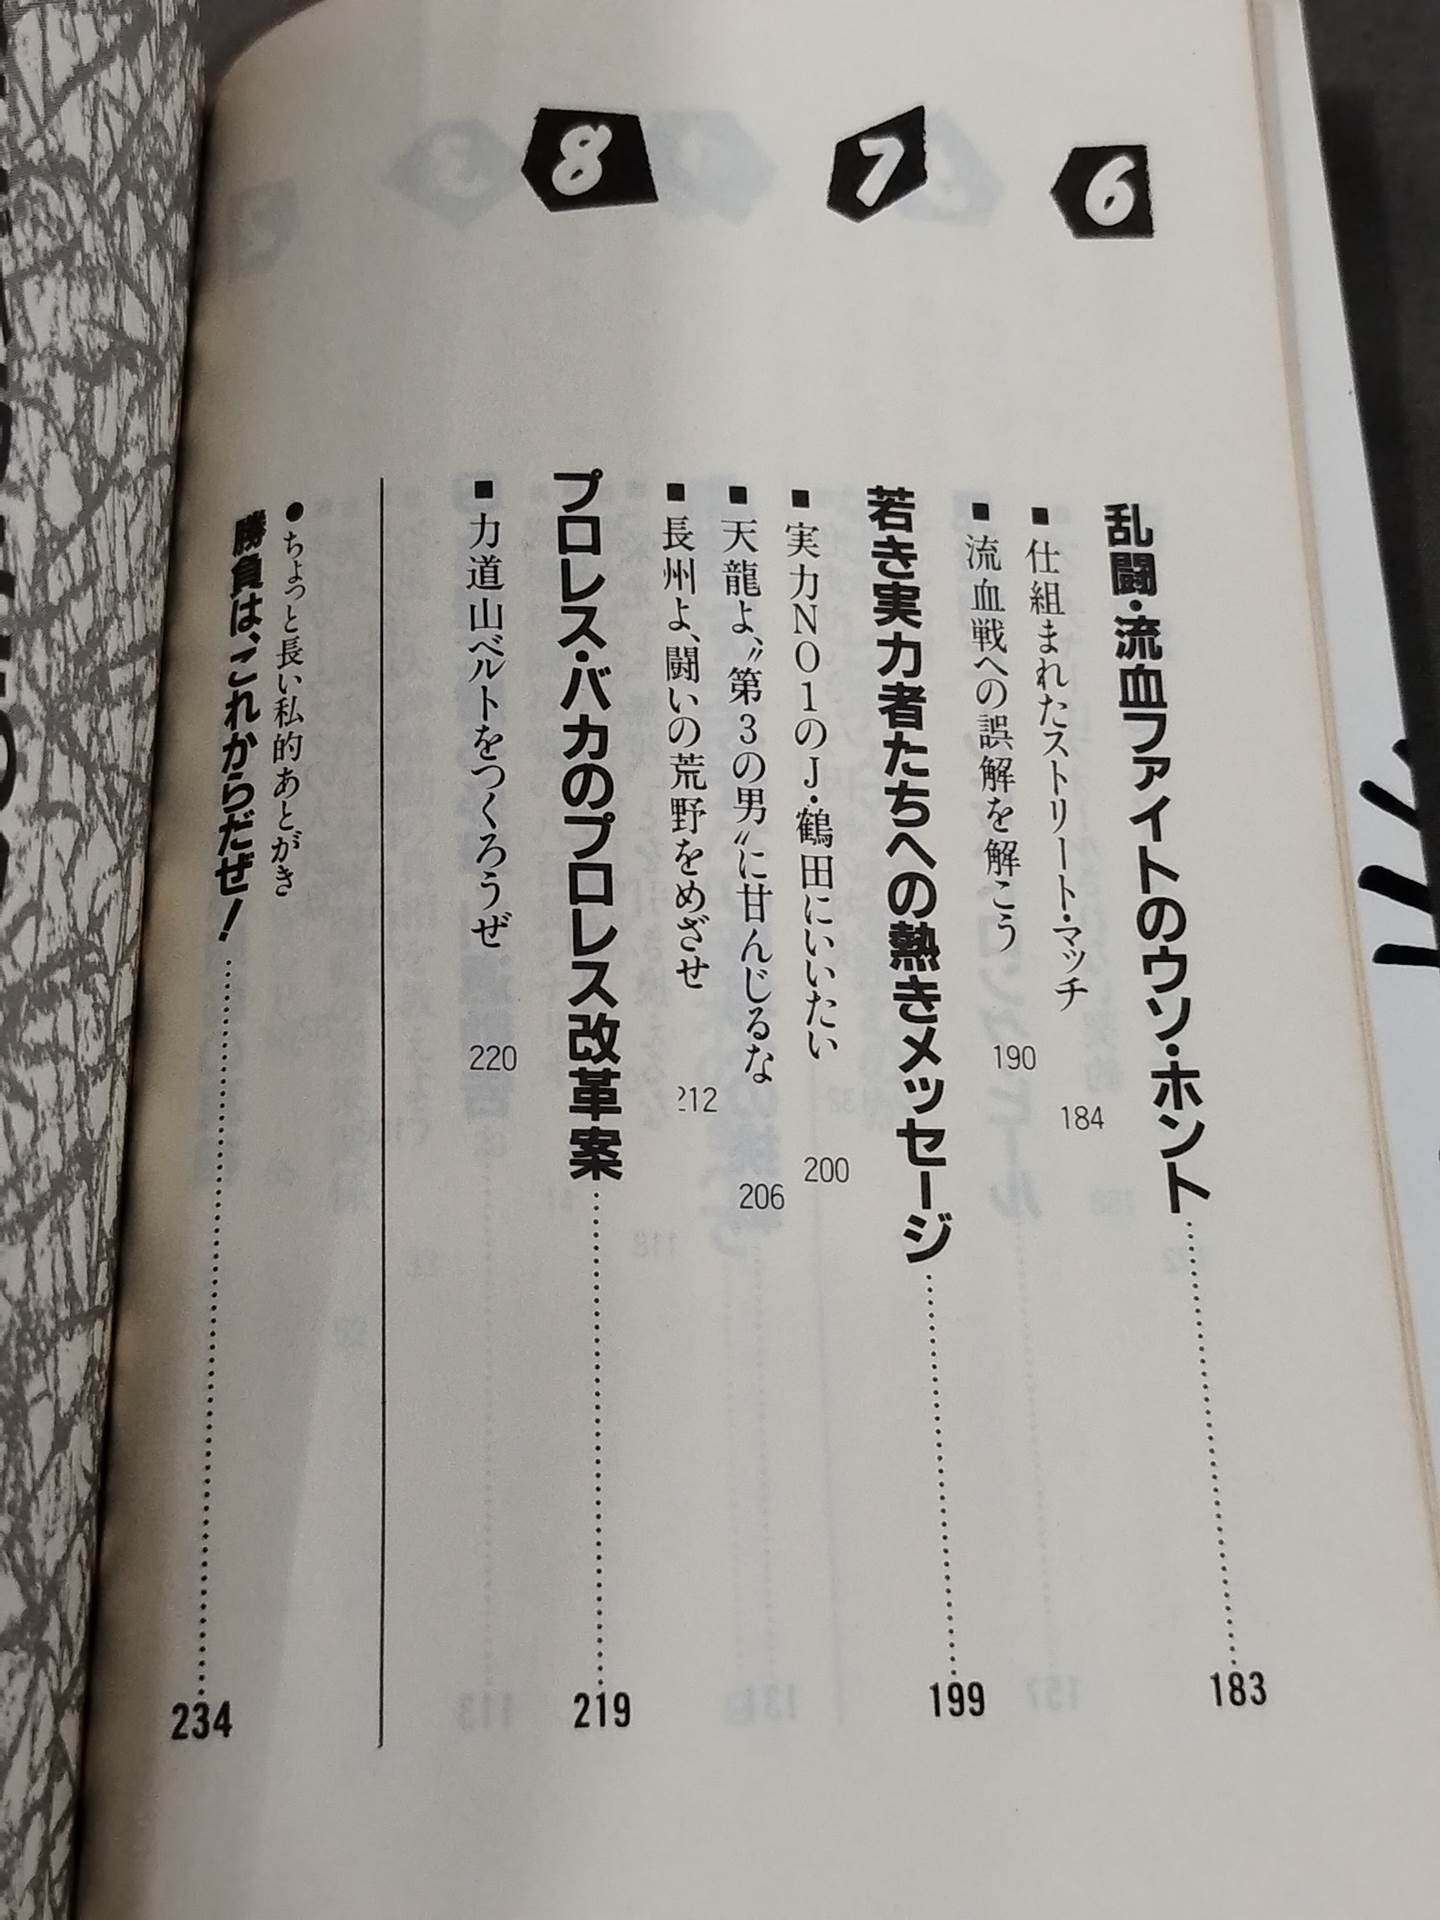 6
乱闘・流血ファイトのウソ・ホント 183
■仕組まれたストリート・マッチ 184
■流血戦への誤解を解こう 190
7
若き実力者たちへの熱きメッセージ 199
■実力NO1のJ・鶴田にいいたい 200
■天龍よ、〝第3の男〟に甘んじるな 206
■長州よ、闘いの荒野をめざせ 212
8
プロレス・バカのプロレス改革案 219
■力道山ベルトをつくろうぜ 220
●ちょっと長い私的あとがき
勝負は、これからだぜ! 234